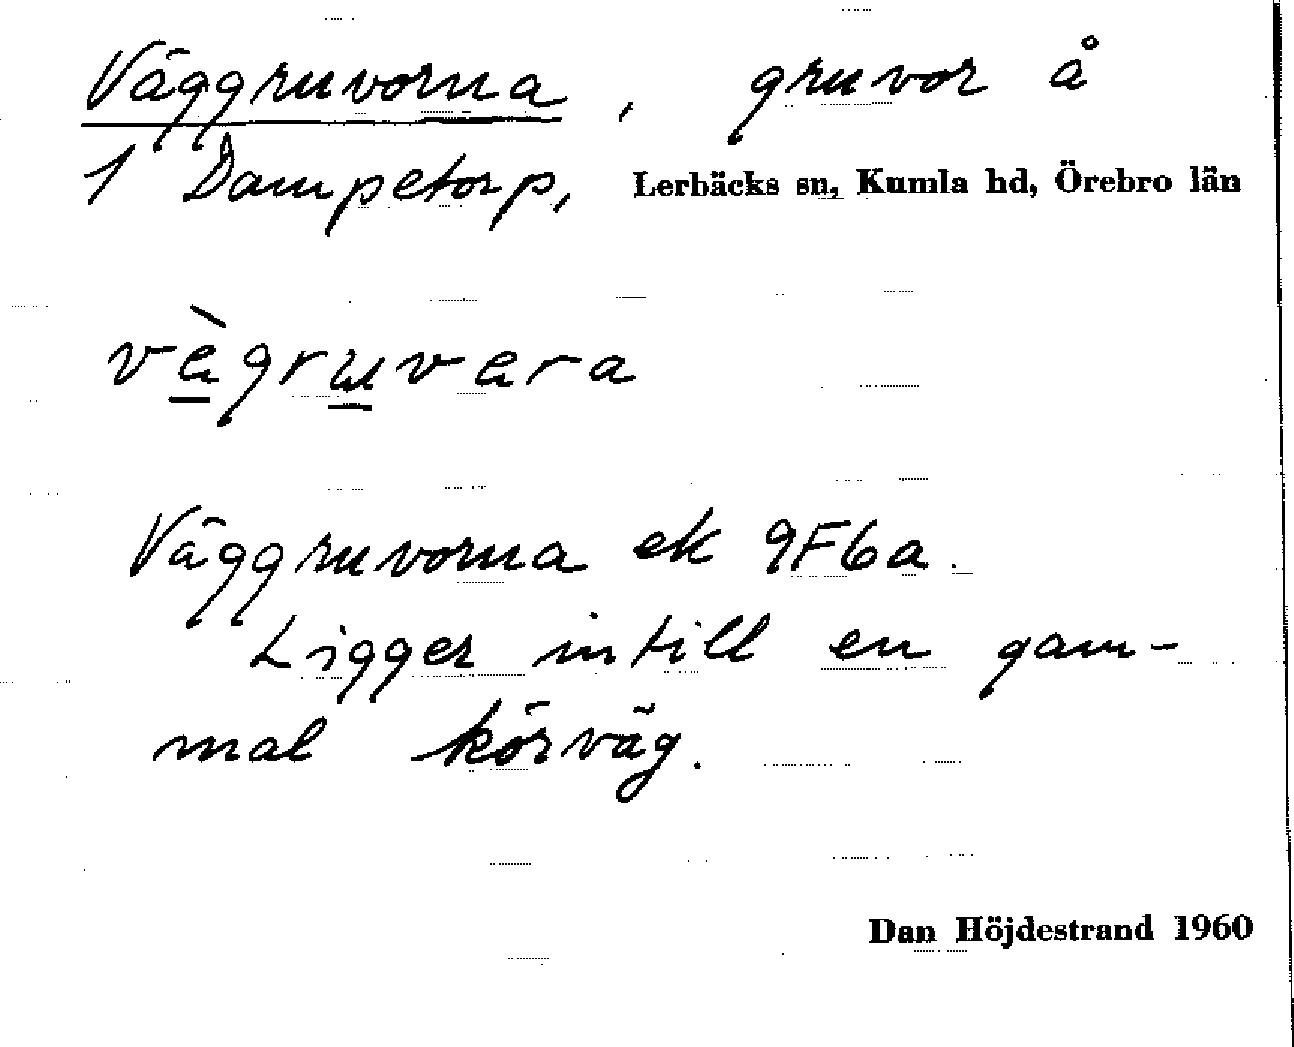 Väggruvorna, gruvor å
1 Dampetorp, Lerbäcks sn, Kumla hd, Örebro län
vàgruvara
Väggruvorna ek 9F6a.
Ligger intill en gam-
mal körväg.
Dan Höjdestrand 1960